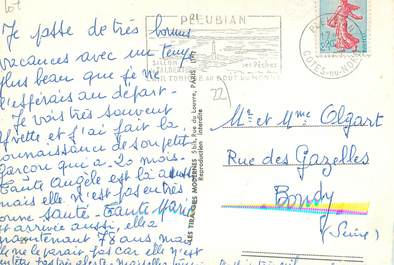 Je passe de très bonnes
vacances avec un temps
plus beau que je ne
l'espérais au départ-
Je vois très souvent
Yvette et j'ai fait la
connaissance de son petit
garçon qui a 20 mois-
Tante Angèle est là aussi
mais elle n'est pas en très
bonne santé- Tante Marie
est arrivée aussi, elle a
maintenant 78 ans, mais
ne le paraît pas car elle n'est
PLEUBIAN
SILLON
TALBERT
ses Pêches
AU BOUT DU MONDE
CÔTES-DU-NORD
22
LES TIRAGES MODERNES 5 bis, Rue du Louvre, PARIS
Reproduction interdite
Mr et Mme Olgart
Rue des Gazelles
Bondy
(Seine)